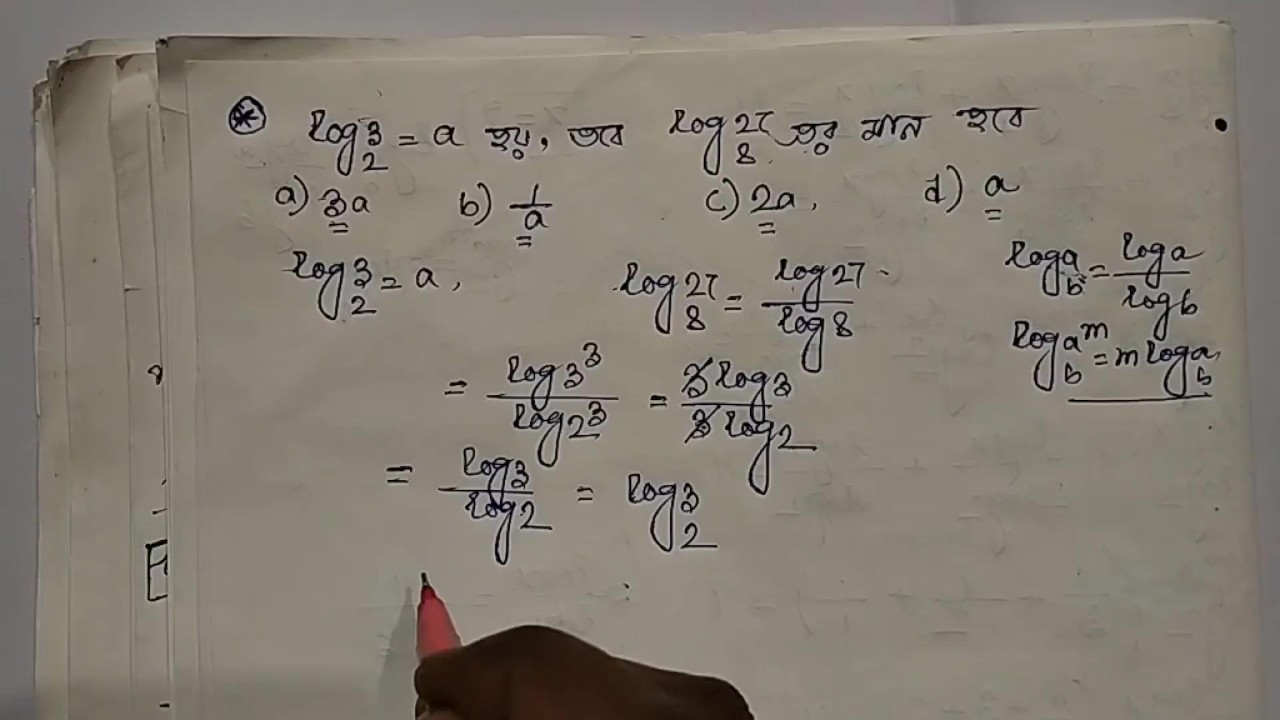 log₂3 = a হয়, তবে log₈27 এর মান হবে
a) 3a b) 1/a c) 2a, d) a
log₂3 = a, log₈27 = log27/log8
logₐb = loga/logb
= log3³/log2³ = 3log3/3log2
log_b a^m = m log_b a
= log3/log2 = log₂3